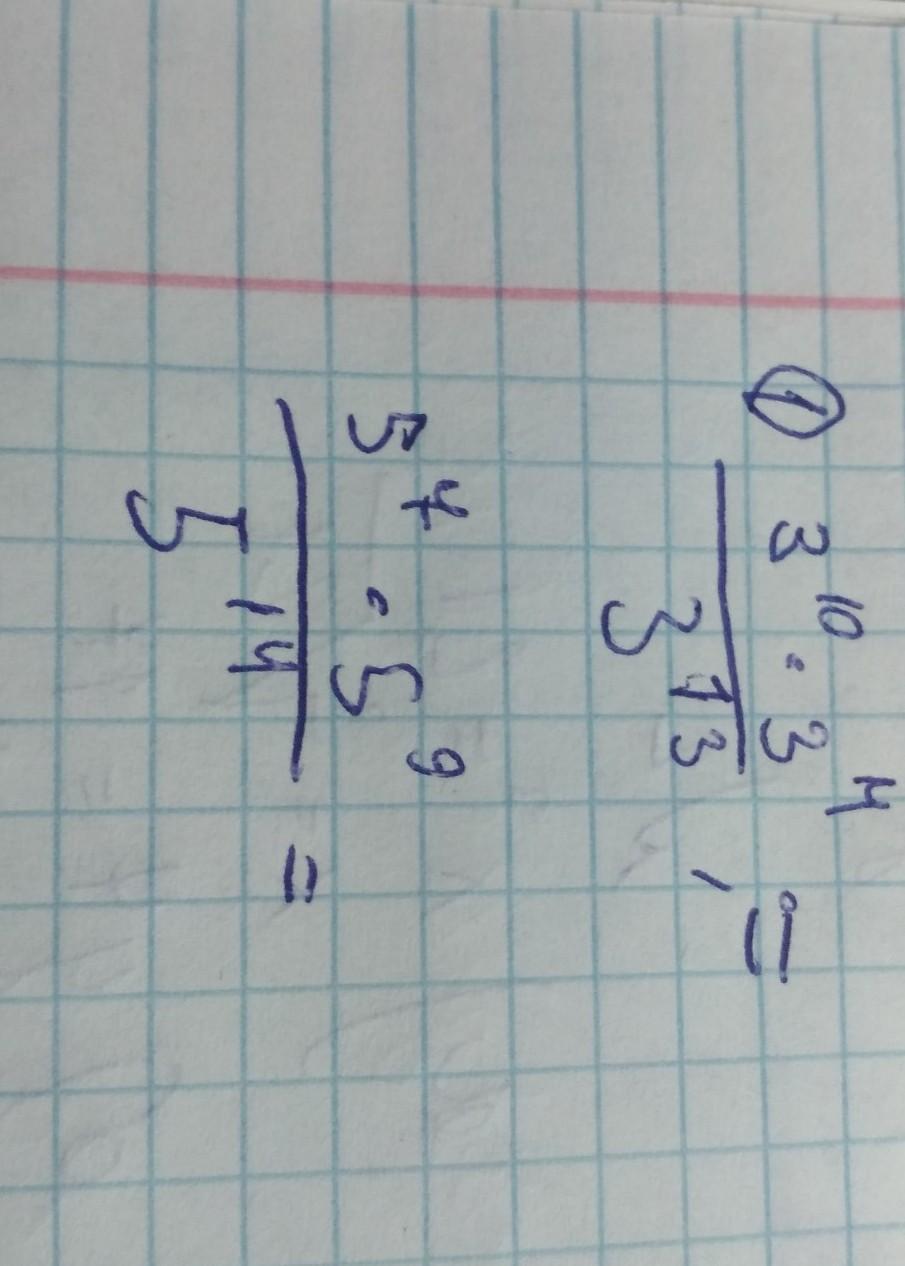 ① 3¹⁰ · 3⁴ =
3¹³
5⁷ · 5⁹
5¹⁴ =